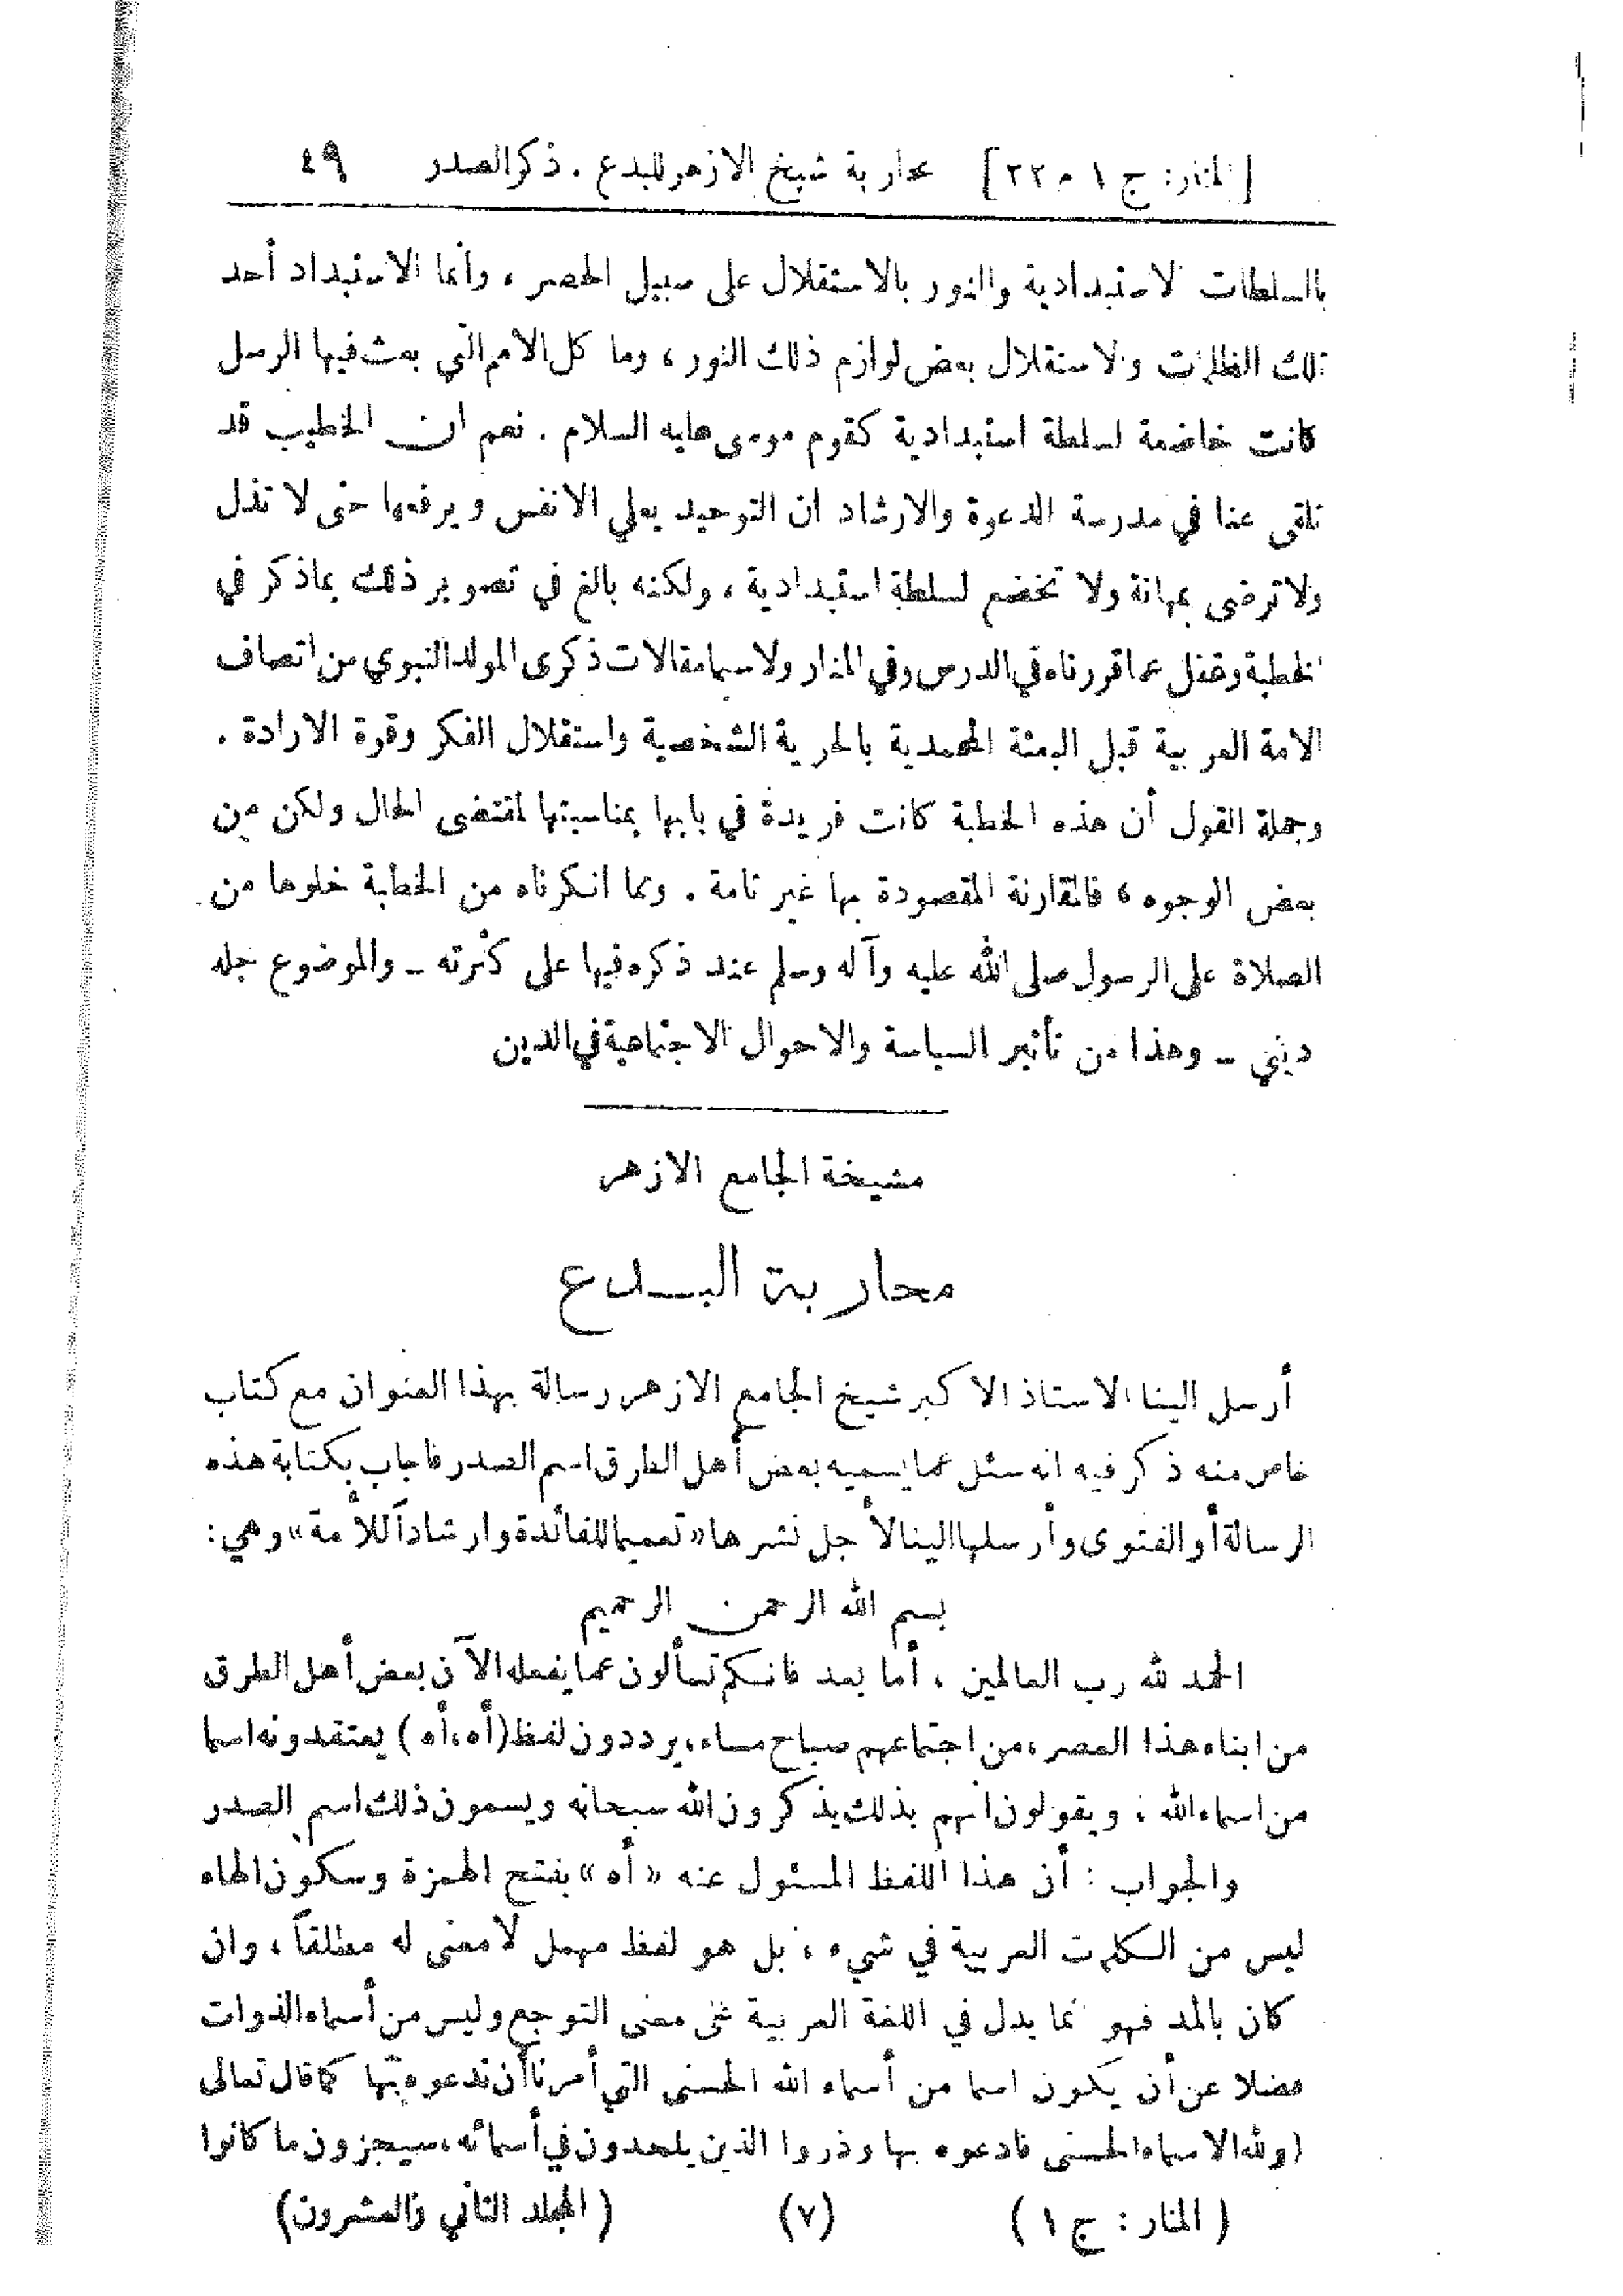 [المنار: ج ١ م ٢٢] محاربة شيخ الازهر للبدع . ذكر الصدر ٤٩
بالسلطات الاستبدادية والنور بالاستقلال على سبيل الحصر ، وانما الاستبداد أحد
تلك الظلمات والاستقلال بعض لوازم ذلك النور ، وما كل الامم التي بعث فيها الرسل
كانت خاضعة لسلطة استبدادية كقوم موسى عليه السلام . نعم ان الخطيب قد
تلقى عنا في مدرسة الدعوة والارشاد ان التوحيد يعلي الانفس ويرفعها حتى لا تذل
ولا ترضى بمهانة ولا تخضع لسلطة استبدادية ، ولكنه بالغ في تصوير ذلك بما ذكر في
الخطبة وغفل عما قررناه في الدرس وفي المنار ولا سيما مقالات ذكرى المولد النبوي من اتصاف
الامة العربية قبل البعثة المحمدية بالحرية الشخصية واستقلال الفكر وقوة الارادة .
وجملة القول أن هذه الخطبة كانت فريدة في بابها بمناسبتها لمقتضى الحال ولكن من
بعض الوجوه ، فالمقارنة المقصودة بها غير تامة . ومما انكرناه من الخطابة خلوها من
الصلاة على الرسول صلى الله عليه وآله وسلم عند ذكره فيها على كثرته ـ والموضوع جله
ديني ـ وهذا من تأثير السياسة والاحوال الاجتماعية في الدين
مشيخة الجامع الازهر
محاربة البـدع
أرسل الينا الاستاذ الاكبر شيخ الجامع الازهر رسالة بهذا العنوان مع كتاب
خاص منه ذكر فيه انه سئل عما يسميه بعض أهل الطرق اسم الصدر فاجاب بكتابة هذه
الرسالة أو الفتوى وأرسلها الينا لأجل نشرها «تعميما للفائدة وارشاداً للأمة» وهي:
بسم الله الرحمن الرحيم
الحمد لله رب العالمين ، أما بعد فانكم تسألون عما يفعله الآن بعض أهل الطرق
من ابناء هذا العصر ، من اجتماعهم صباح مساء ، يرددون لفظ (أه، أه) يعتقدونه اسما
من اسماء الله ، ويقولون انهم بذلك يذكرون الله سبحانه ويسمون ذلك اسم الصدر
والجواب : أن هذا اللفظ المسئول عنه «أه» بفتح الهمزة وسكون الهاء
ليس من الكلمات العربية في شيء ، بل هو لفظ مهمل لا معنى له مطلقاً ، وان
كان بالمد فهو مما يدل في اللغة العربية على معنى التوجع وليس من أسماء الذوات
فضلا عن أن يكون اسما من أسماء الله الحسنى التي أمرنا أن ندعوه بها كما قال تعالى
(ولله الاسماء الحسنى فادعوه بها وذروا الذين يلحدون في أسمائه ، سيجزون ما كانوا
(المنار : ج ١) (٧) (المجلد الثاني والعشرون)